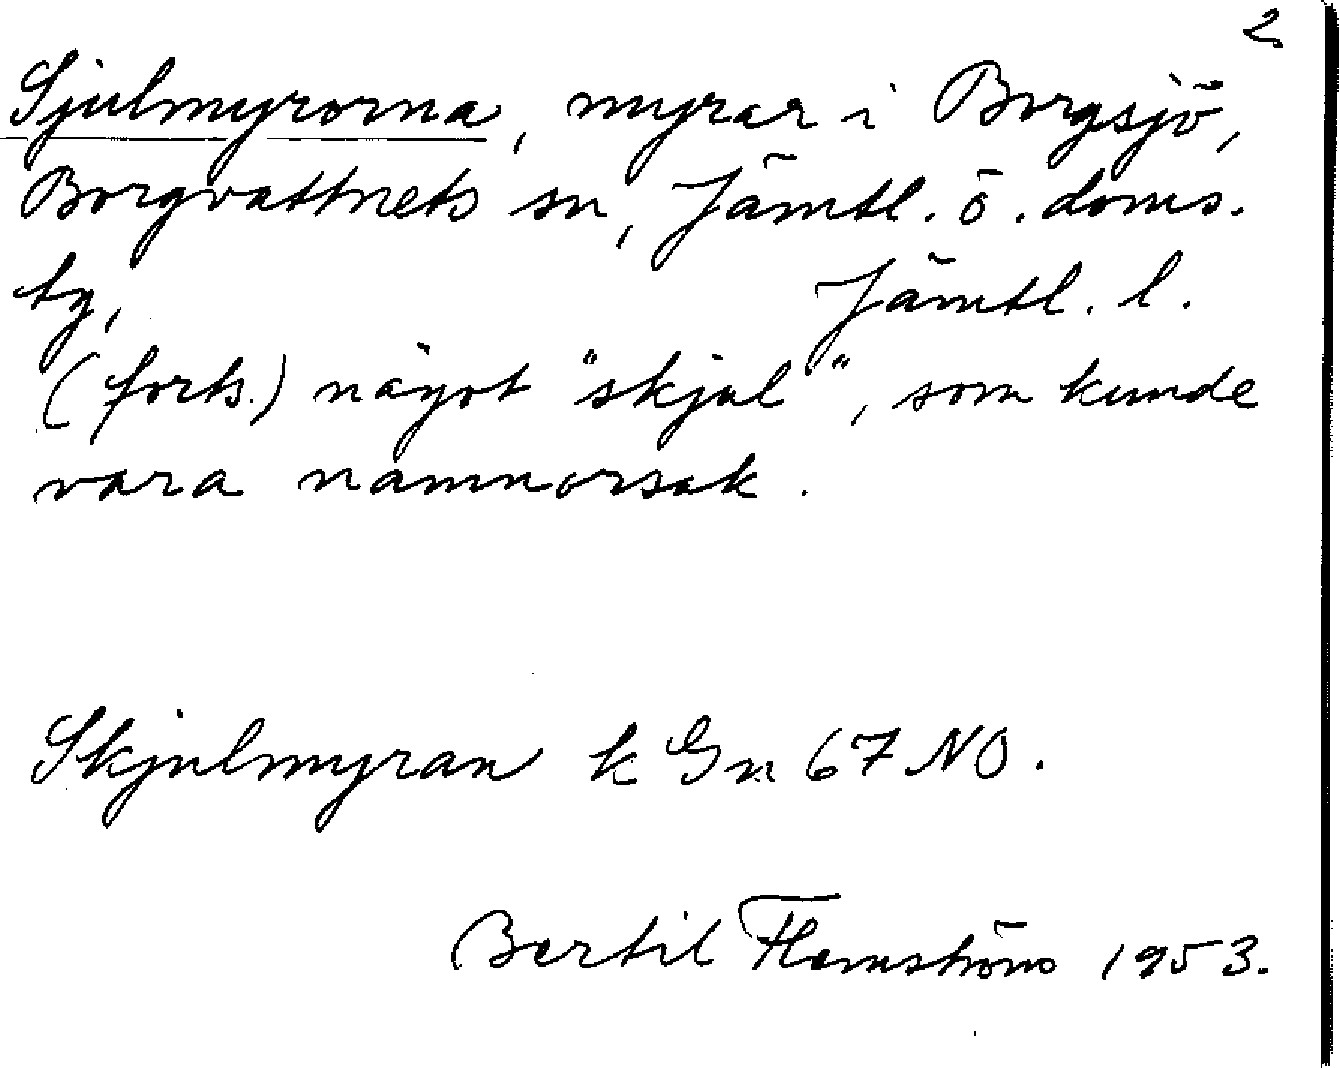 2
Sjulmyrorna, myrar i Borgsjö,
Borgvattnets sn, Jämtl. ö. doms.
tg, Jämtl. l.
(forts.) något "skjul", som kunde
vara namnorsak.
Skjulmyran k Gn 67 NO.
Bertil Flemström 1953.